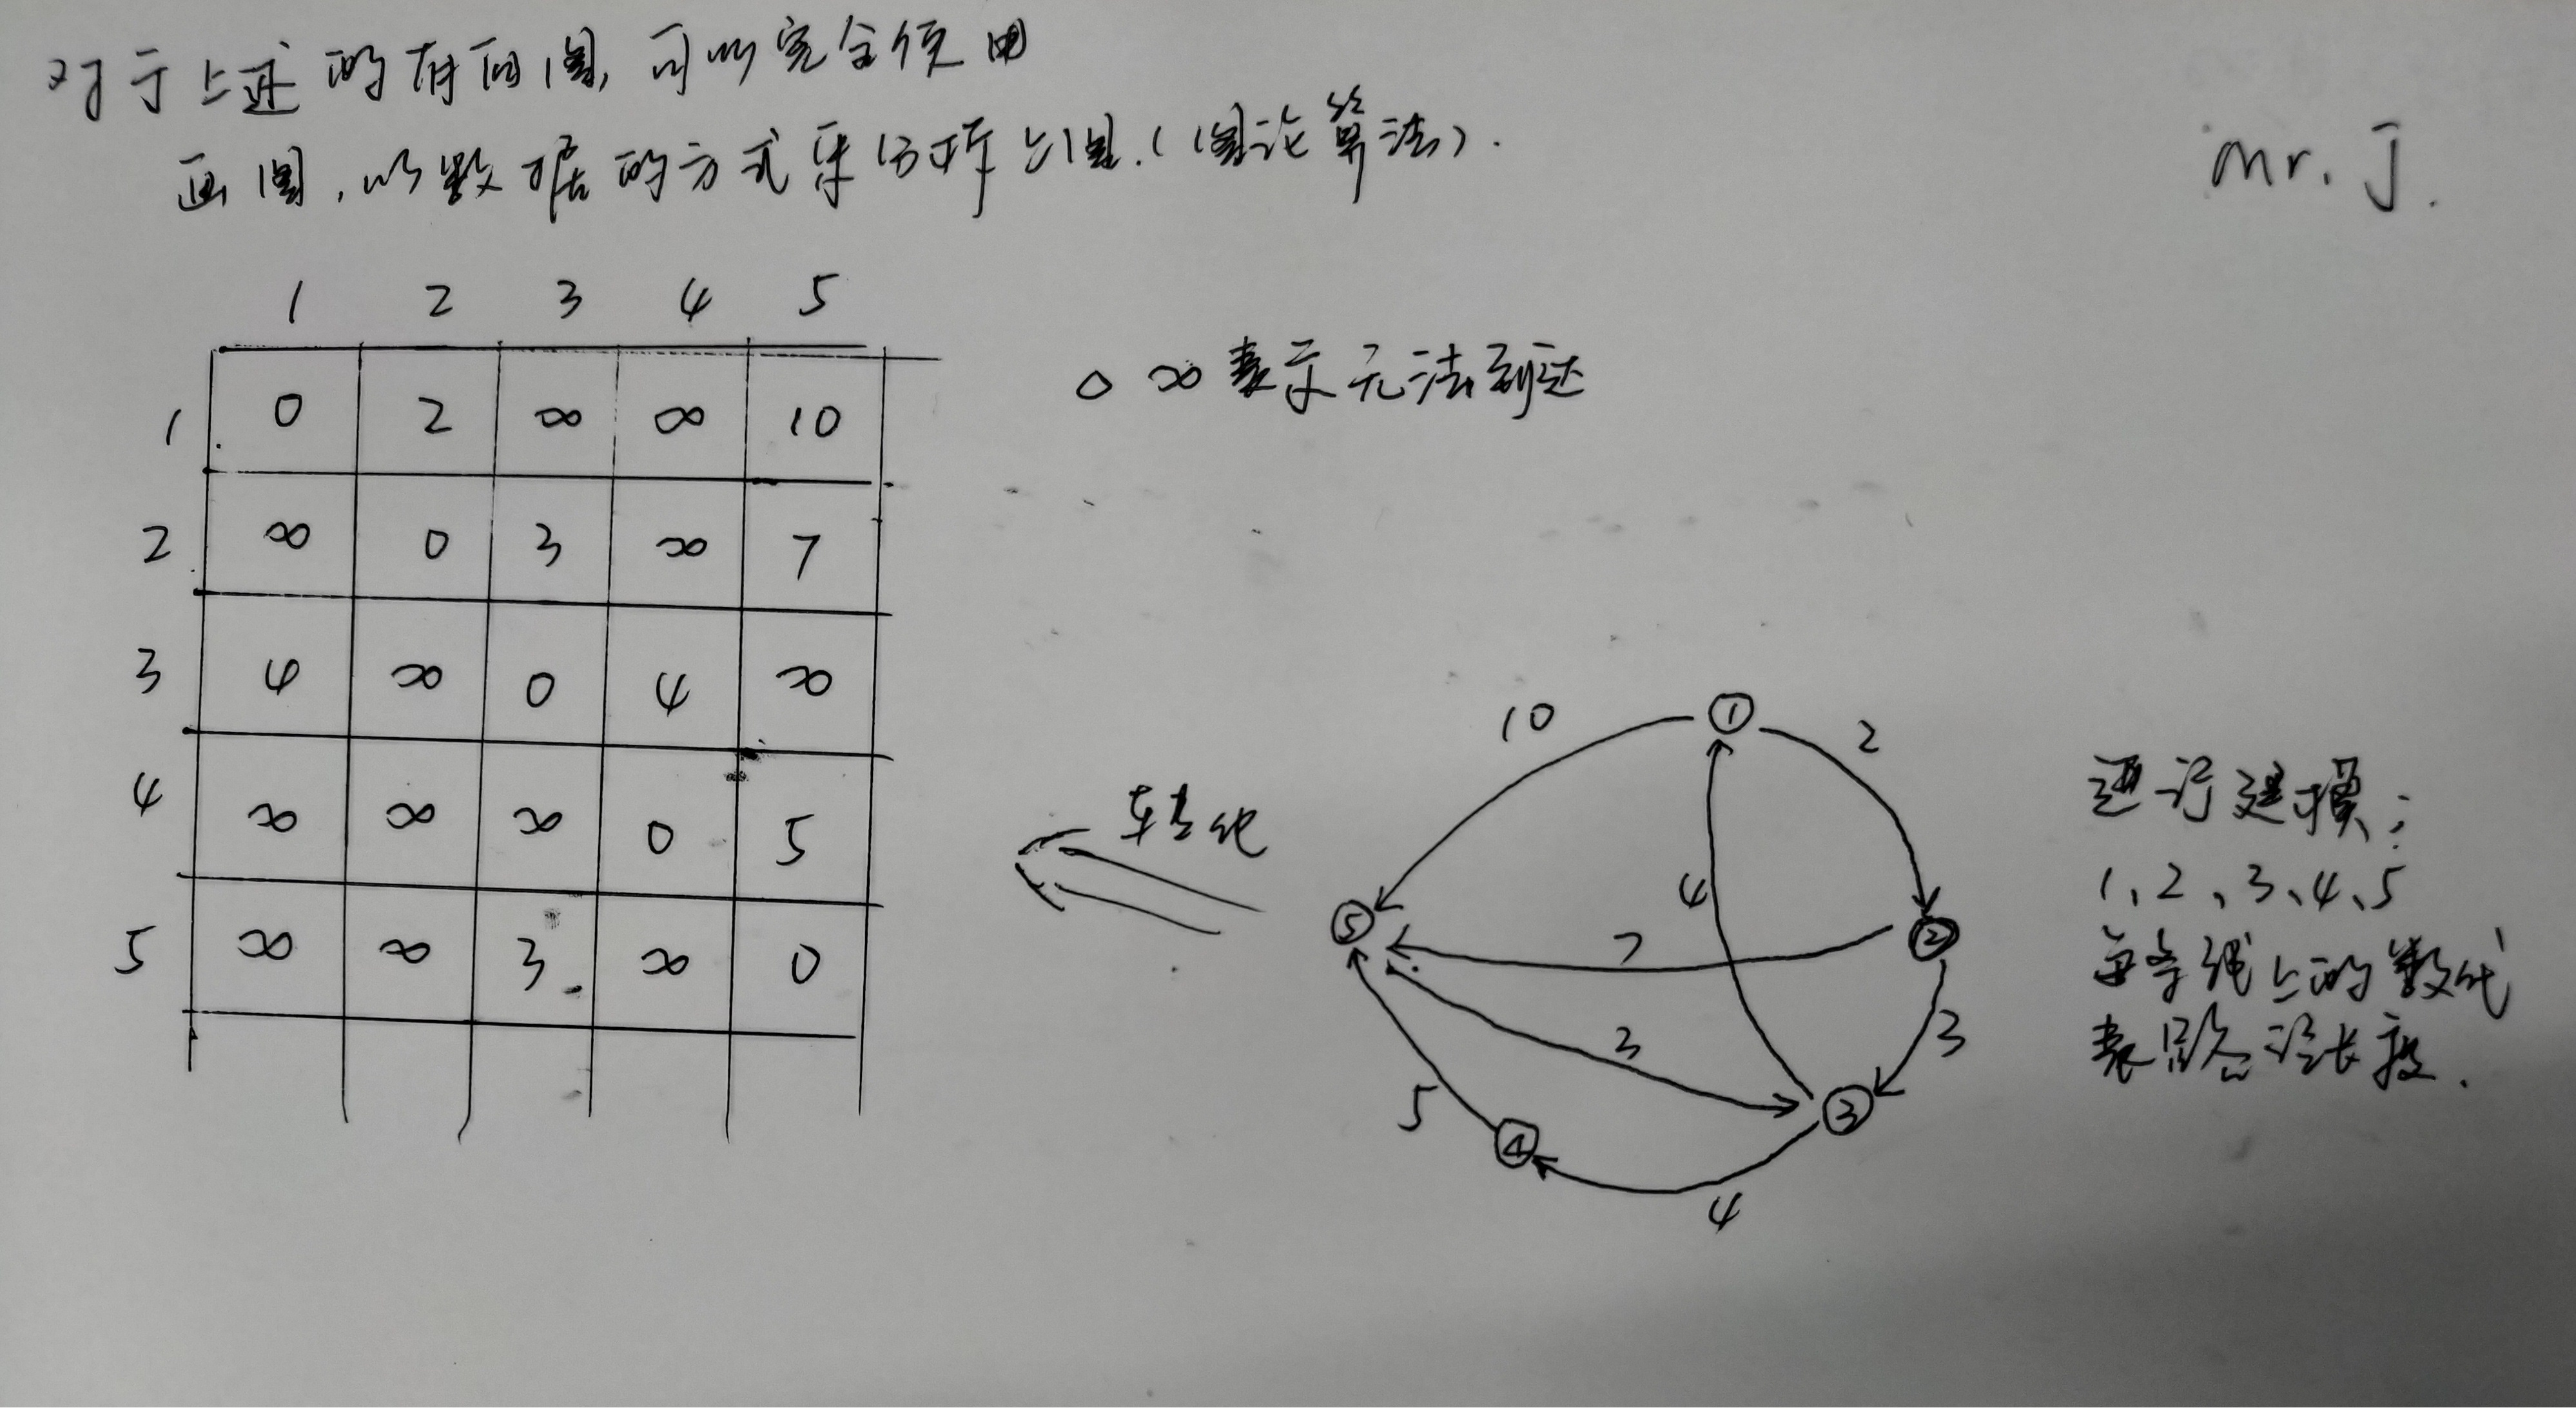 对于上述的有向图,可以完全使用
画图,以数据的方式来分析上图.(图论算法).
mr. J.
1 2 3 4 5
1 0 2 ∞ ∞ 10
2 ∞ 0 3 ∞ 7
3 4 ∞ 0 4 ∞
4 ∞ ∞ ∞ 0 5
5 ∞ ∞ 3 ∞ 0
∞表示无法到达
转化
10
①
2
4
⑤
7
②
3
3
5
④
③
4
进行建模:
1、2、3、4、5
每条线上的数代
表路径长度.